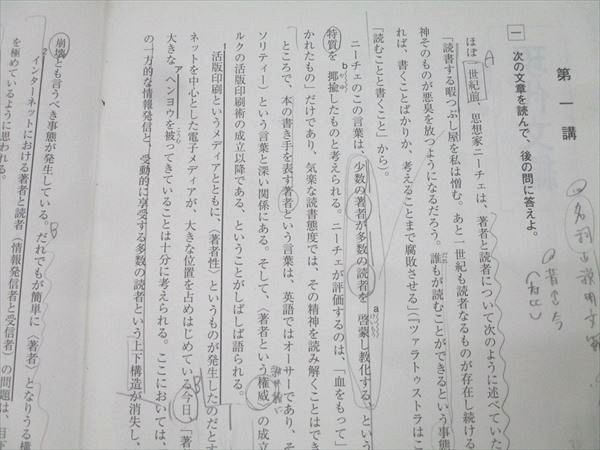 第一講
一 次の文章を読んで、後の問に答えよ。
ほぼ一世紀前、思想家ニーチェは、著者と読者について次のように述べていた
「読書する暇つぶし屋を私は憎む。あと一世紀も読者なるものが存在し続ける
神そのものが悪臭を放つようになるだろう。誰もが読むことができるという事態
れば、書くことばかりか、考えることまで腐敗させる」(『ツァラトゥストラはこ
「読むことと書くこと」から)。
ニーチェのこの言葉は、少数の著者が多数の読者を a啓蒙し教化する、という
特質を b揶揄したものと考えられる。ニーチェが評価するのは、「血をもって」
かれたもの」だけであり、気楽な読書態度では、その精神を読み解くことはでき
ところで、本の書き手を表す著者という言葉は、英語ではオーサーであり、そ
ソリティー)という言葉と深い関係にある。そして、〈著者という権威〉の成立
ルクの活版印刷術の成立以降である、ということがしばしば語られる。
活版印刷というメディアとともに、〈著者性〉というものが発生したのだとす
ネットを中心とした電子メディアが、大きな位置を占めはじめている今日、「著
大きな アヘンヨウを被ってきていることは十分に考えられる。ここにおいては、
の一方的な情報発信と、受動的に享受する多数の読者という上下構造が消失し、
崩壊とも言うべき事態が発生している。だれでもが簡単に〈著者〉となりうる構
インターネットにおける著者と読者(情報発信者と受信者)の問題は、目下
を極めているように思われる。
A
B
B